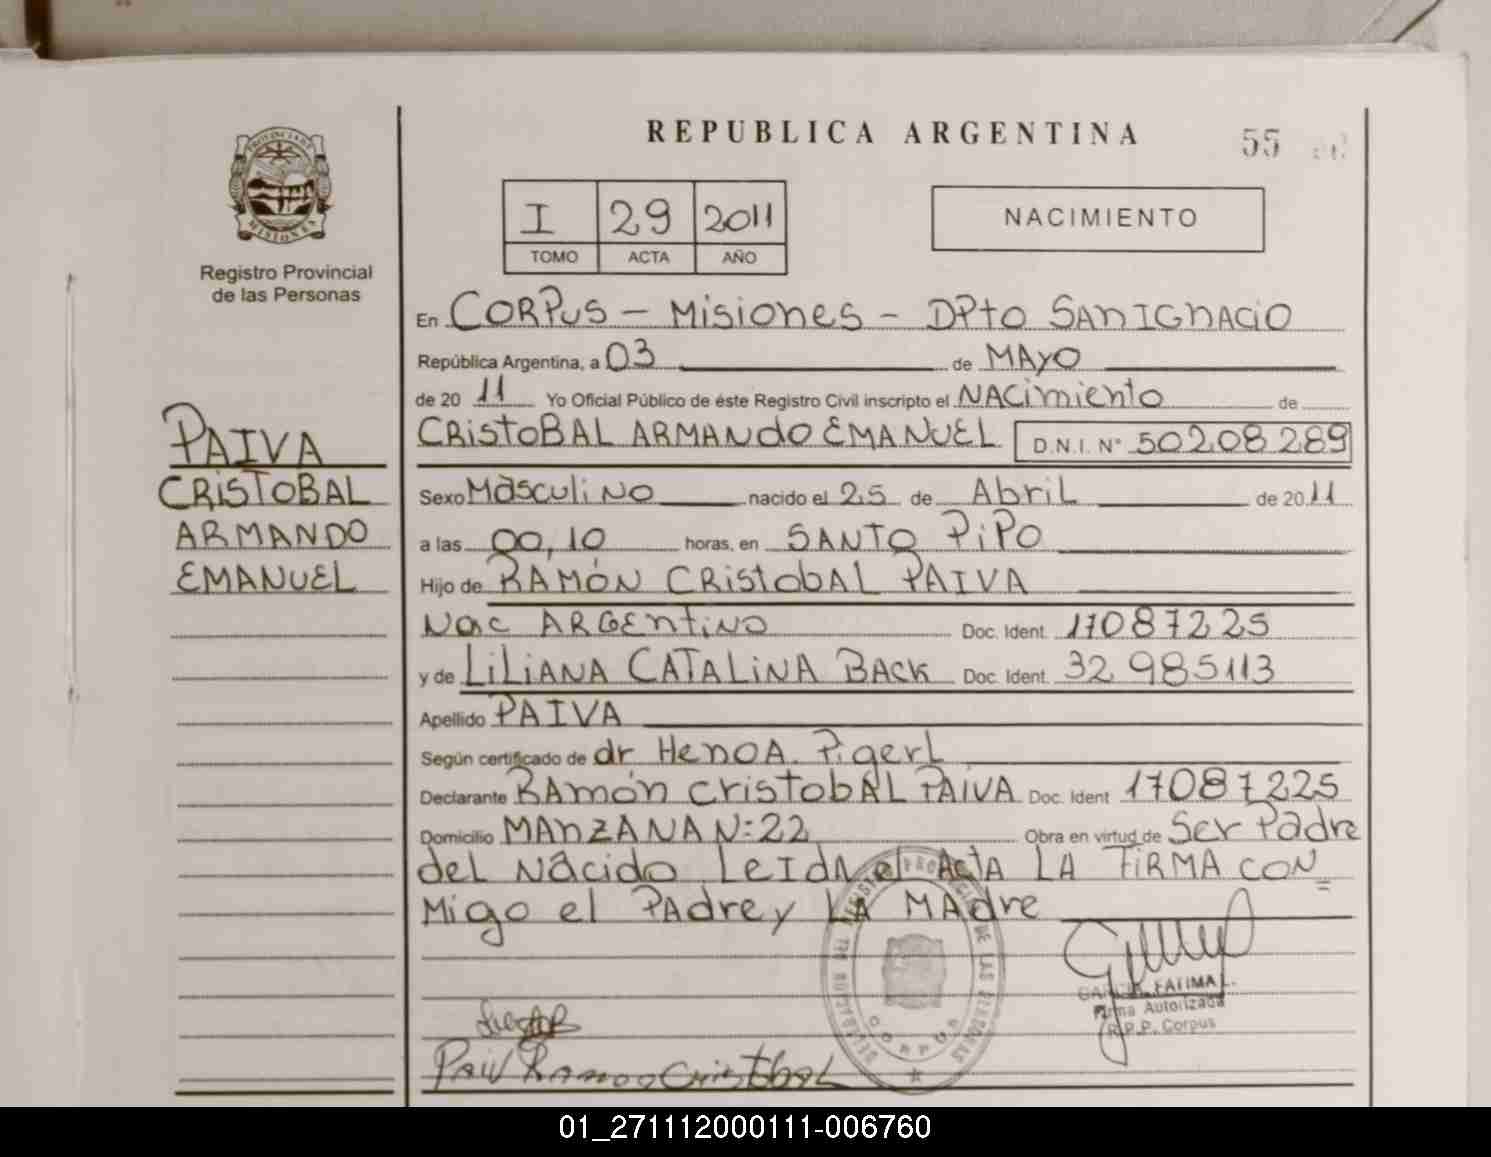 REPUBLICA ARGENTINA
55
PROVINCIA DE MISIONES
Registro Provincial
de las Personas
I 29 2011
TOMO ACTA AÑO
NACIMIENTO
En CORPUS - Misiones - DPto SAN IGNACIO
República Argentina, a 03 de MAYO
de 20 11 Yo Oficial Público de éste Registro Civil inscripto el NACimiento de
CRistoBAL ARMANdO EMANUEL D.N.I. N° 50208289
PAIVA
CRISTOBAL
ARMANDO
EMANUEL
Sexo Masculino nacido el 25 de Abril de 20 11
a las 00,10 horas, en SANTO PiPO
Hijo de RAMÓN CRistobAL PAIVA
Nac ARGEntiNO Doc. Ident. 17087225
y de LiLiANA CATALiNA BACK Doc. Ident. 32 985113
Apellido PAIVA
Según certificado de dr HenOA. PigerL
Declarante RAmón cristobAL PAIVA Doc. Ident 17087225
Domicilio MAnZANA N: 22 Obra en virtud de Ser Padre
deL Nacido LeIdA el ActA LA FiRMA CON=
Migo el PAdre y LA MAdre
GARCIA FATIMA L.
Firma Autorizada
R.P.P. Corpus
CORPUS
Ramon Cristobal
01_271112000111-006760